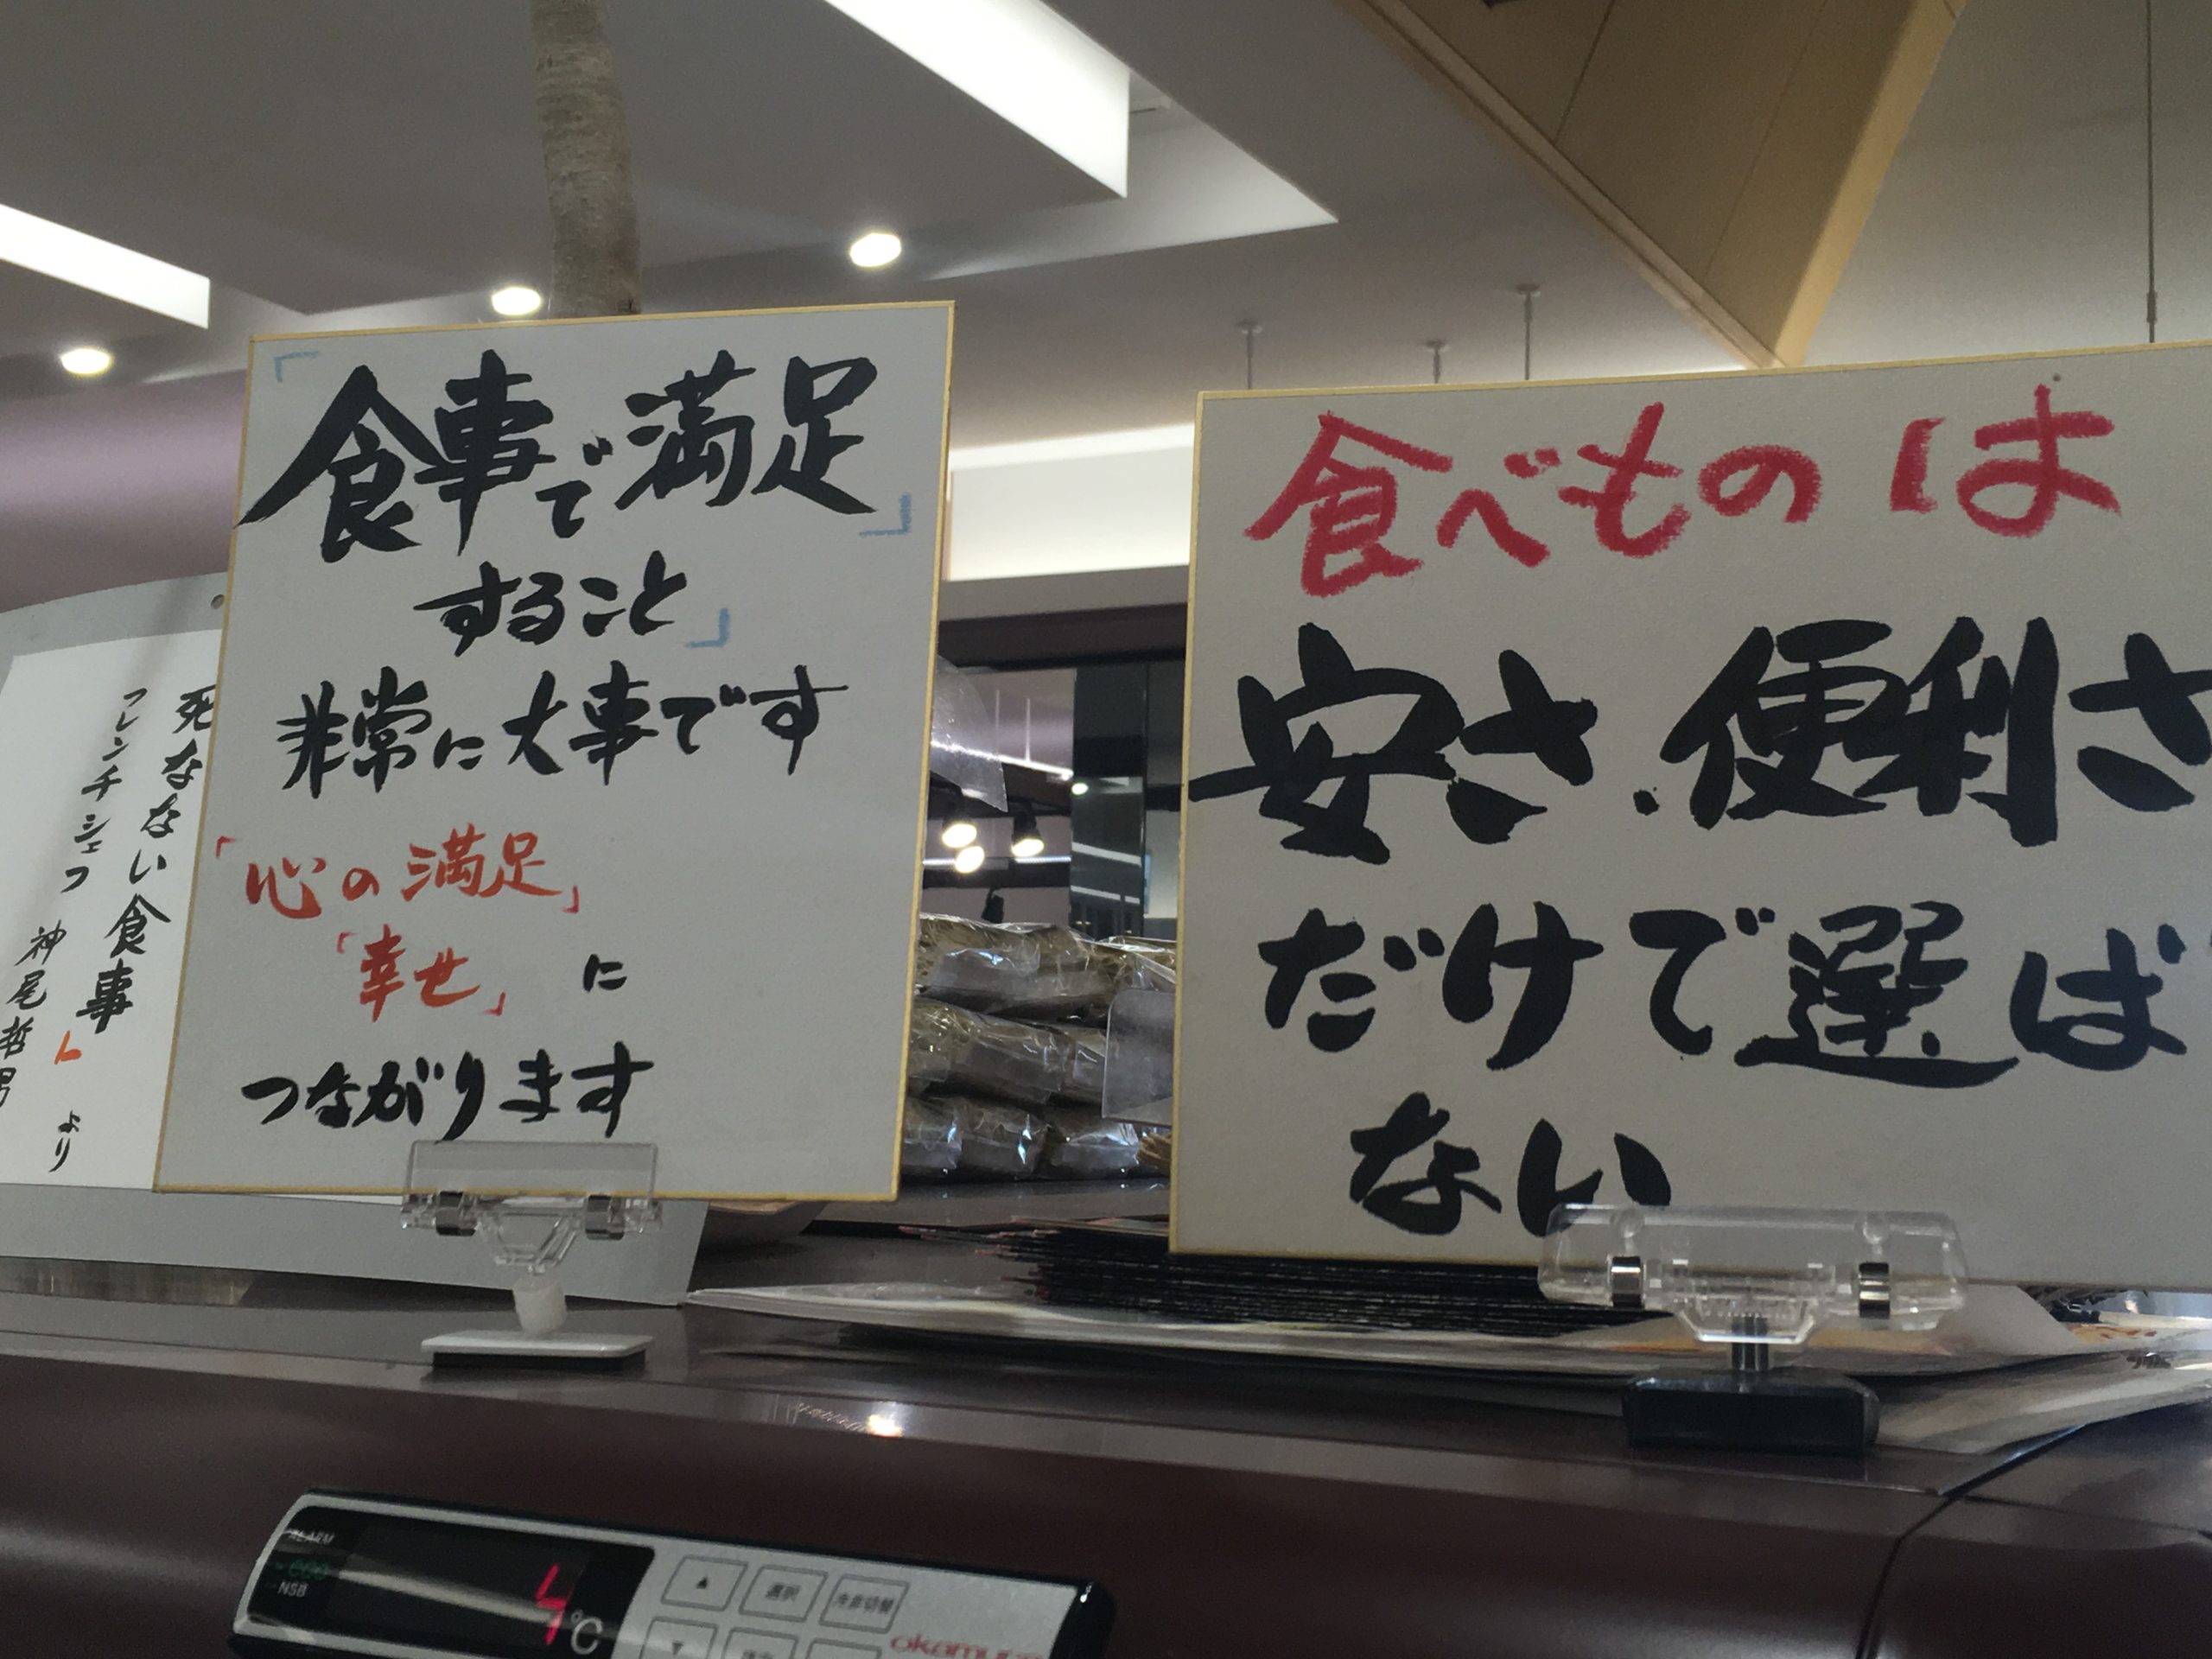 死なない食事
フレンチシェフ 神尾哲男
より
「食事で満足」
すること」
非常に大事です
「心の満足」
「幸せ」に
つながります
食べものは
安さ.便利さ
だけで選ば
ない
ALARM
NSB
4℃
▲
選択
▼
okamura